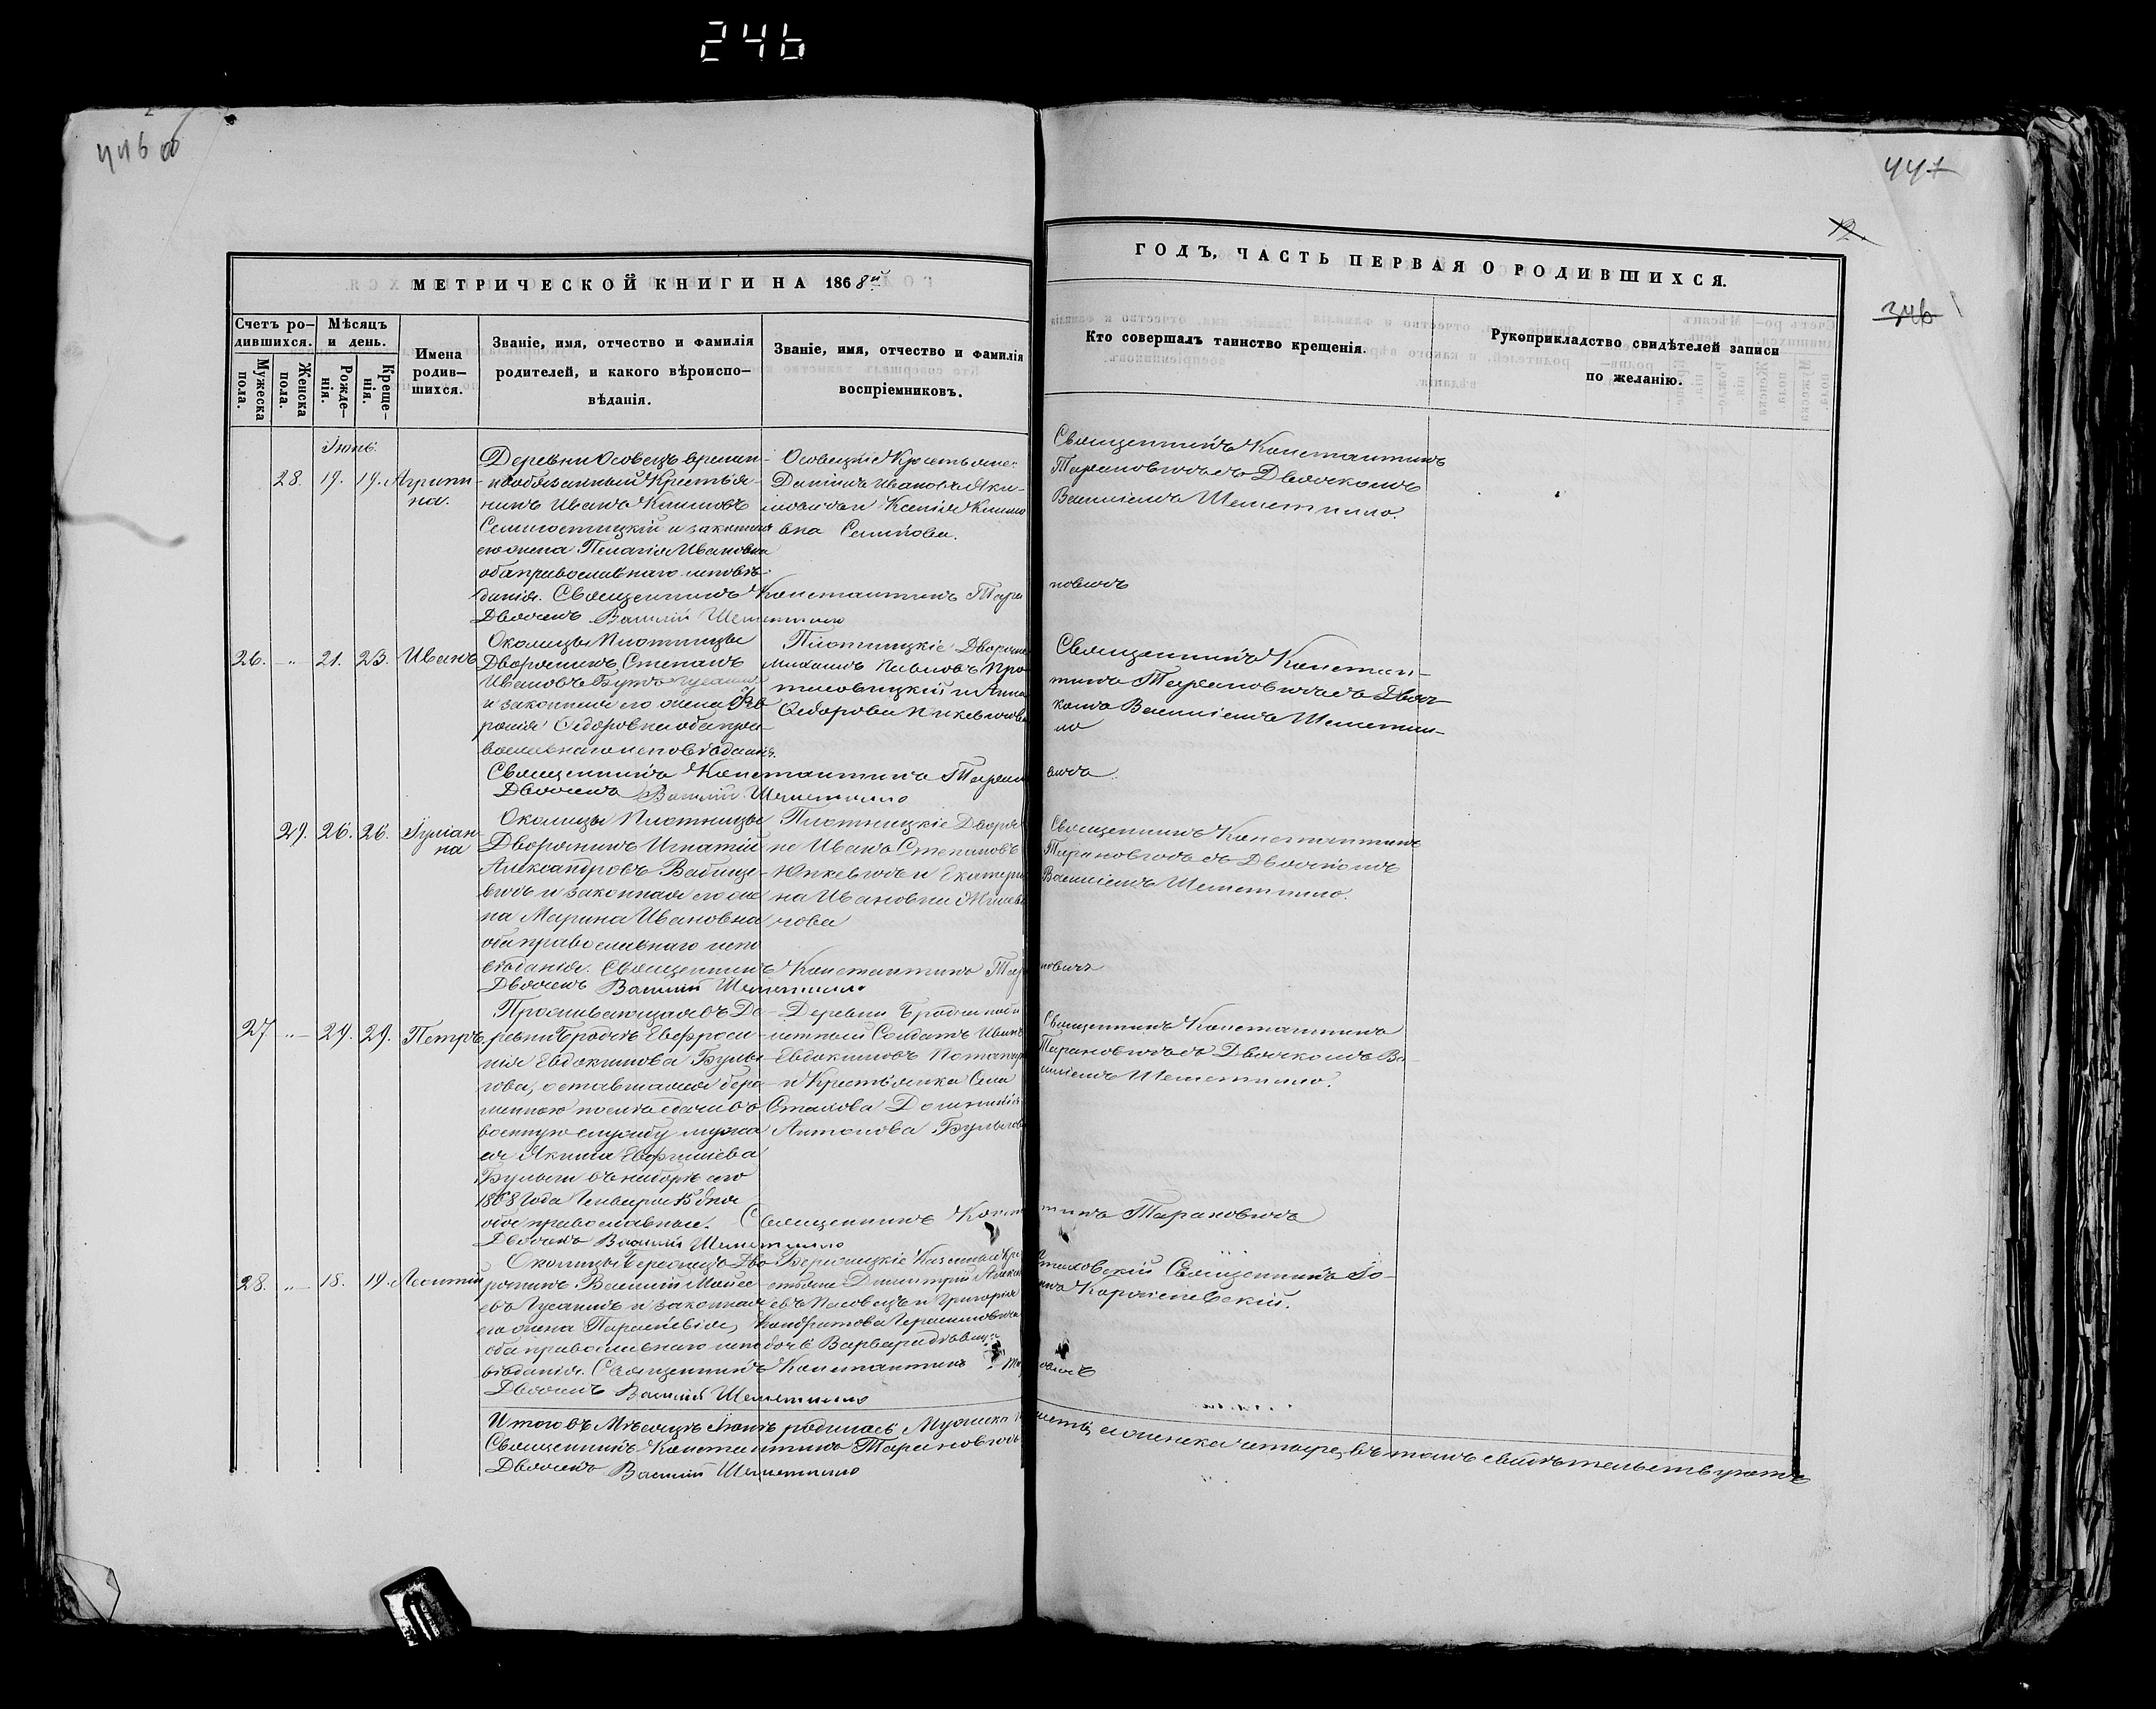 246
446 об
447
12.
346
МЕТРИЧЕСКОЙ КНИГИ НА 1868й
ГОДЪ, ЧАСТЬ ПЕРВАЯ О РОДИВШИХСЯ.
Счетъ ро-
дившихся.
Мужеска
пола.
Женска
пола.
Мѣсяцъ
и день.
Рожде-
нія.
Креще-
нія.
Имена
родив-
шихся.
Званіе, имя, отчество и фамилія
родителей, и какого вѣроиспо-
вѣданія.
Званіе, имя, отчество и фамилія
воспріемниковъ.
Кто совершалъ таинство крещенія.
Рукоприкладство свидѣтелей записи
по желанію.
Іюнь.
28. 19. 19. Агрипи-
на.
Деревни Особецъ времян-
нообязанный Крестья-
нинъ Иванъ Климовъ
и законная
его жена Пелагія Ивановна
оба православнаго исповѣ-
данія. Священникъ Константинъ Тара
новичъ
Дьячекъ Василій Шеметилло
Особецкіе Крестьяне:
Даніилъ Ивановъ
и Ксенія Климо
вна
Священникъ Константинъ
Тарановичъ съ Дьячкомъ
Василіемъ Шеметилло.
26. " 21. 23. Иванъ
Околицы Плотницы
Дворянинъ Степанъ
Ивановъ
и законная его жена Ев
ронія Ѳедоровна оба пра-
вославнаго исповѣданія.
Священникъ Константинъ Таран
вичъ
Дьячекъ Василій Шеметилло
Плотницкіе Дворяне
Михаилъ Павловъ Про
тасовицкій и Анна
Ѳедорова
Священникъ Констан-
тинъ Тарановичъ съ Дьяч-
комъ Василіемъ Шеметил-
ло
29. 26. 26. Іуліан-
на
Околицы Плотницы
Дворянинъ Игнатій
Александровъ Вабище-
вичъ и законная его же
на Марина Ивановна
оба православнаго испо
вѣданія. Священникъ Константинъ Тара
новичъ
Дьячекъ Василій Шеметилло
Плотницкіе Дворя
не Иванъ Степановъ
Юшкевичъ и Екатери
на Ивановна
Священникъ Константинъ
Тарановичъ съ Дьячкомъ
Василіемъ Шеметилло.
27 " 29. 29. Петръ.
Проживающая въ Де
ревни Бродчѣ Евфроси-
нія Евдокимова Булы
гова, оставшаяся бере
менною послѣ сдачи въ
военную службу мужа
ея Якима
Булыги въ наборъ его
1868 года Генваря 15 дня
обое православные. Священникъ Конст
тинъ Тарановичъ
Дьячекъ Василій Шеметилло
Деревни Бродчи
Солдатъ Иванъ
Евдокимовъ
и Крестьянка Села
Стахова Домникія
Антонова Булыгов
Священникъ Константинъ
Тарановичъ съ Дьячкомъ Ва-
силіемъ Шеметилло.
28. " 18. 19. Леонтій
Околицы Бережецъ Дво
рянинъ Василій Моѵсе
евъ и законная
его жена Параскевія,
оба православнаго испо
вѣданія. Священникъ Константинъ Та
новичъ
Дьячекъ Василій Шеметилло
Казенные Кре
стьяне Димитрій
и Григорія
Кондратова
дочь Варвара дѣвица
Священникъ Іо-
Итого въ Мѣсяцѣ Іюнѣ родилось Мужеска
а женска четыре, въ томъ свидѣтельствуютъ
Священникъ Константинъ Тарановичъ
Дьячекъ Василій Шеметилло